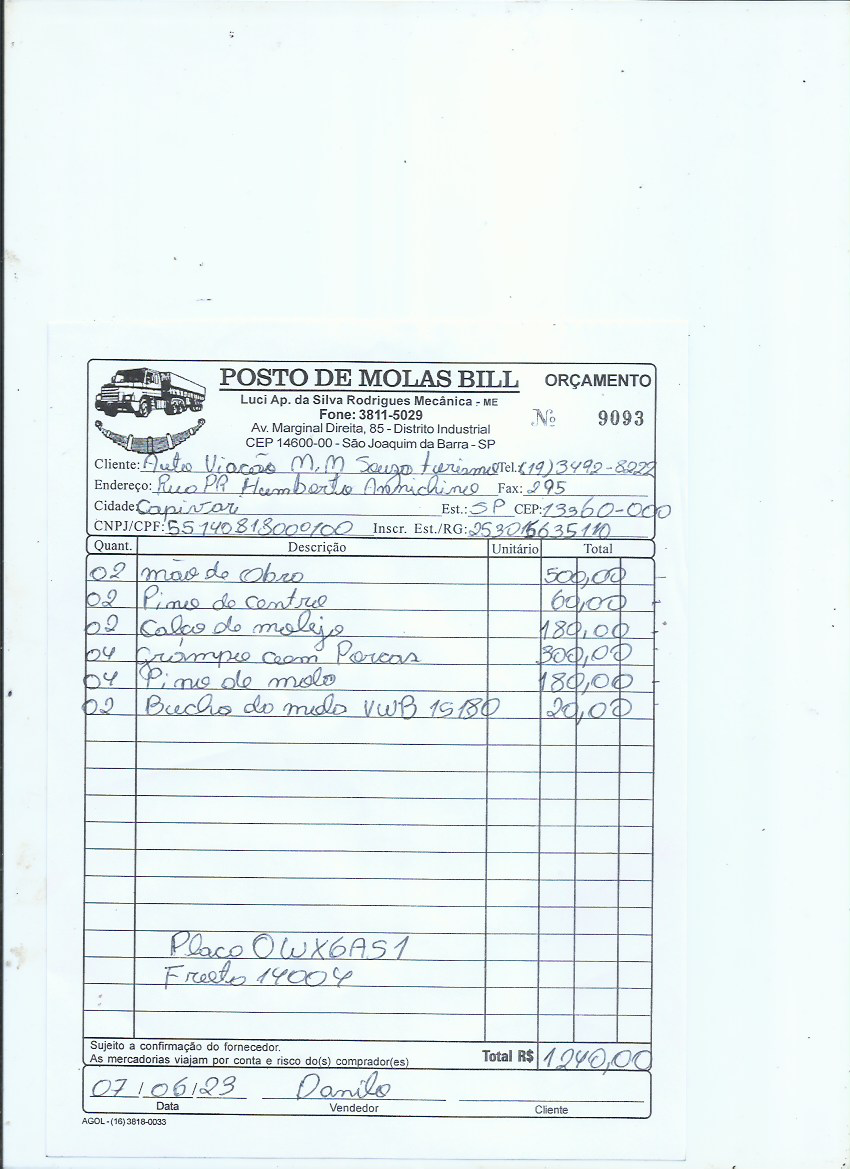 POSTO DE MOLAS BILL ORÇAMENTO
Luci Ap. da Silva Rodrigues Mecânica - ME
Fone: 3811-5029 Nº 9093
Av. Marginal Direita, 85 - Distrito Industrial
CEP 14600-00 - São Joaquim da Barra - SP
Cliente: Auto Viação M.M Souza turismo Tel.: (19)3492-8222
Endereço: Rua PR Humberto Fax: 295
Cidade: Capivari Est.: SP CEP: 13360-000
CNPJ/CPF: 55140813000100 Inscr. Est./RG:
Quant. Descrição Unitário Total
02 mão de obra 500,00
02 Pino de centro 60,00
02 Calço de molejo 180,00
04 Grampo com Porcas 300,00
04 Pino de mola 180,00
02 Bucha da mola VWB 15180 20,00
Placa OWX6A51
Frota 14004
Sujeito a confirmação do fornecedor.
As mercadorias viajam por conta e risco do(s) comprador(es) Total R$ 1240,00
07/06/23 Danilo
Data Vendedor Cliente
AGOL - (16) 3818-0033